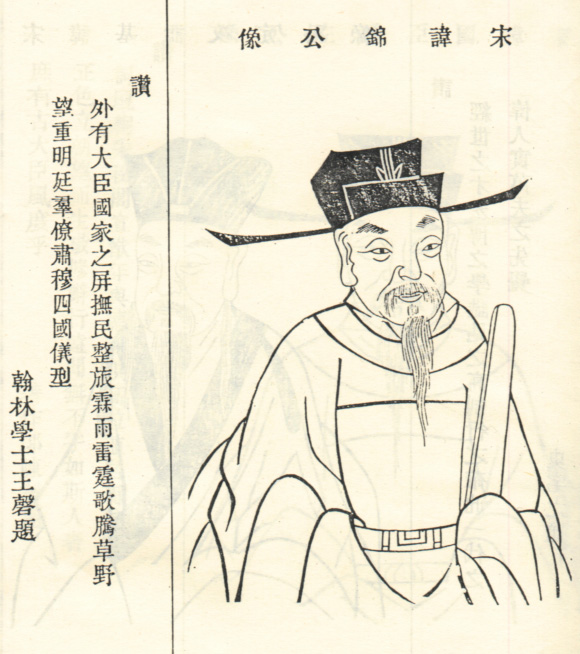 宋諱錦公像
讚
外有大臣國家之屏撫民整旅霖雨雷霆歌騰草野
望重明廷羣僚肅穆四國儀型
翰林學士王磬題